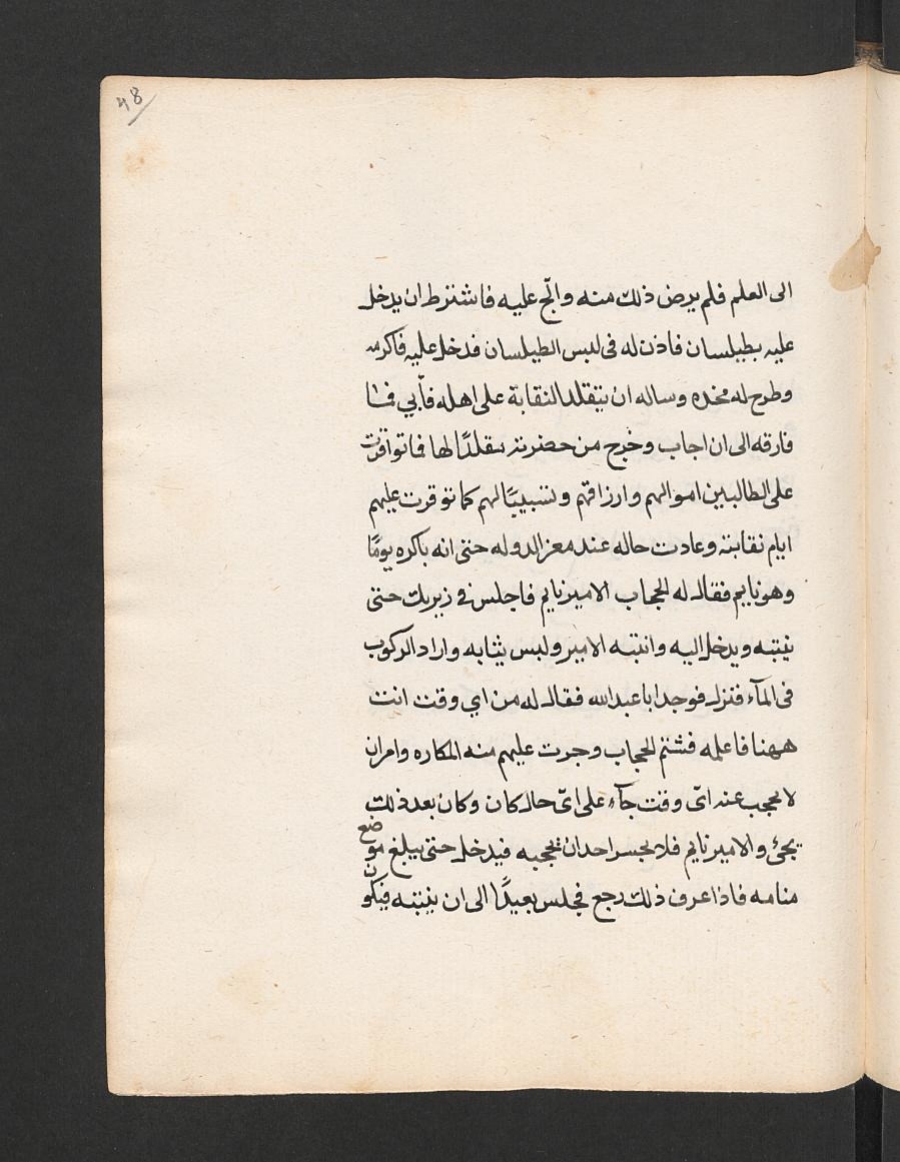 48
الى العلم فلم يرض ذلك منه والّح عليه فاشترط ان يدخل
عليه بطيلسان فاذن له فى لبس الطيلسان فدخل عليه فاكرمه
وطرح له مخده وساله ان يتقلد النقابة على اهله فأبي فما
فارقه الى ان اجاب وخرج من حضرته مقلدًا لها فما توقرت
على الطالبين اموالهم وارزاقهم وتسبيبًا لهم كما توقرت عليهم
ايام نقابته وعادت حاله عند معز الدوله حتى انه باكره يومًا
وهو نايم فقال له الحجاب الامير نايم فاجلس في زبزبك حتى
ينتبه ويدخل اليه وانتبه الامير ولبس ثيابه واراد الركوب
فى المآء فنزل فوجد ابا عبد الله فقال له من اي وقت انت
ههنا فاعلمه فشتم الحجاب وجرت عليهم منه المكاره وامر ان
لا يحجب عنه ائ وقت جآء على ائ حال كان وكان بعد ذلك
يجئ والامير نايم فلا يجسر احد ان يحجبه فيدخل حتى يبلغ موضع
منامه فاذا عرف ذلك رجع فجلس بعيدًا الى ان ينتبه فيكون